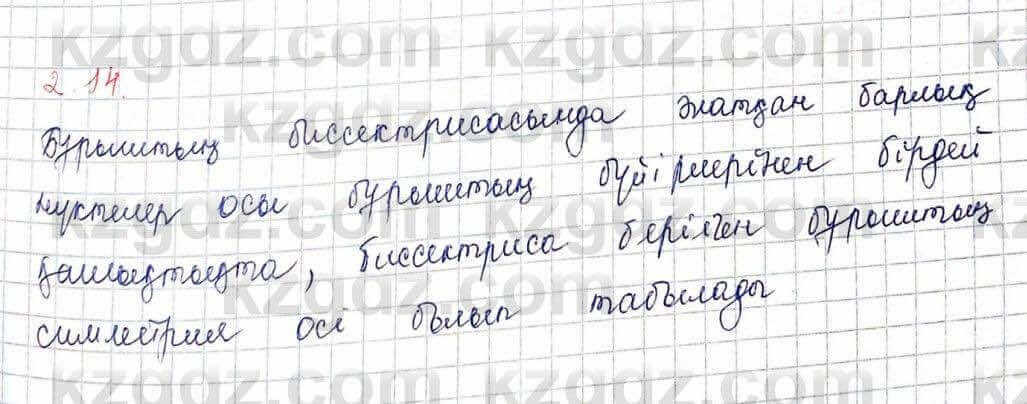 2.14.
Бұрыштың биссектрисасында жатқан барлық
нүктелер осы бұрыштың бүйірлерінен бірдей
қашықтықта, биссектриса берілген бұрыштың
симметрия осі болып табылады